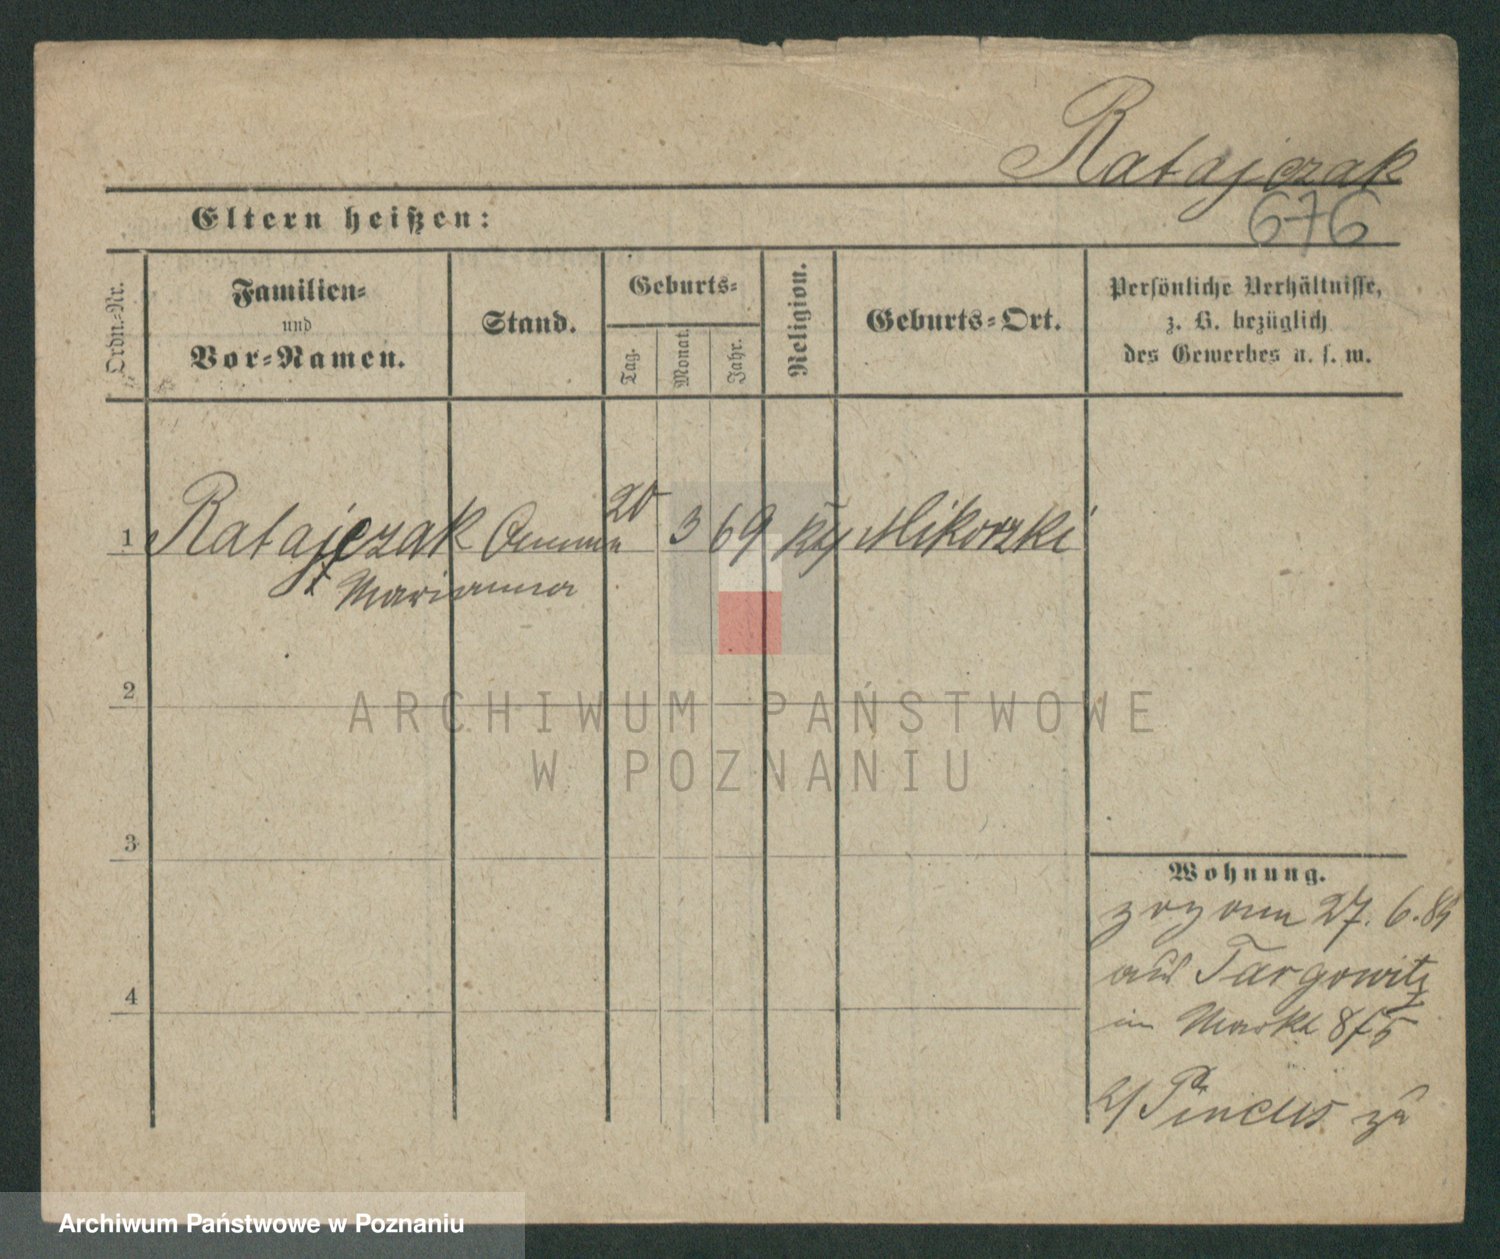 Ratajczak
676
Eltern heißen:
Ordn.-Nr.
Familien-
und
Vor-Namen.
Stand.
Geburts-
Tag.
Monat.
Jahr.
Religion.
Geburts-Ort.
Persönliche Verhältnisse,
z. B. bezüglich
des Gewerbes u. s. w.
1 Ratajczak Amme 20 3 69 kth Mikorzki
Marianna
2
3
4
Wohnung.
zog am 27. 6. 89
aus Targowitz
im Markt 8/5
2/ Pincus zu
ARCHIWUM PAŃSTWOWE
W POZNANIU
Archiwum Państwowe w Poznaniu